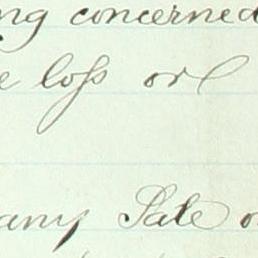 ng concerned
e loss or
any Sale o